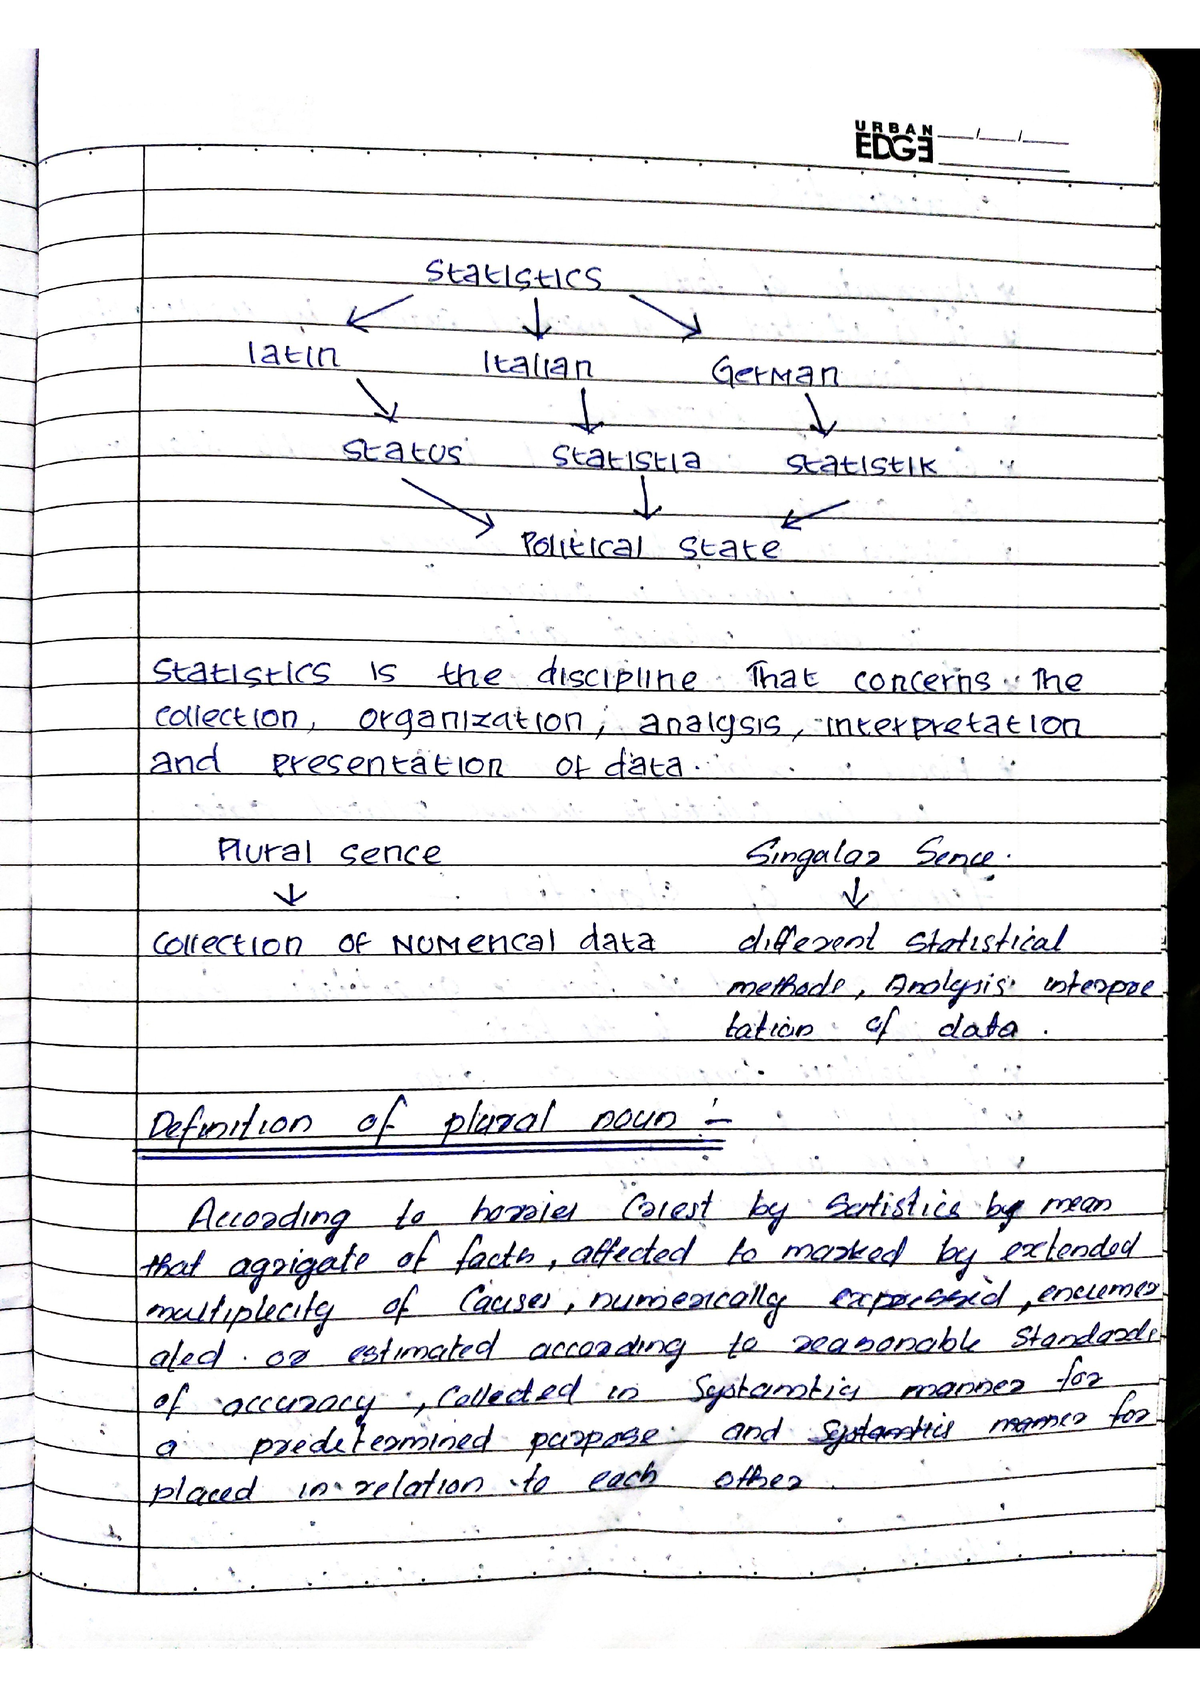 URBAN
EDGE
Statistics
latin Italian German
Status Statistia Statistik
Political State
Statistics is the discipline That concerns The
collection, organization, analysis, interpretation
and presentation of data.
Plural sence Singalar Sence.
collection of Numerical data different Statistical
methods, Analysis interpre
tation of data.
Definition of plural noun :-
According to horries Crest by Satistics by mean
that agrigate of facts, affected to marked by extended
multiplecity of Causes, numerically expressed, enumer
ated or estimated according to reasonable Standards
of accuracy, Collected in Systamtic manner for
a predetermined purpose and Systamtic manner for
placed in relation to each other.